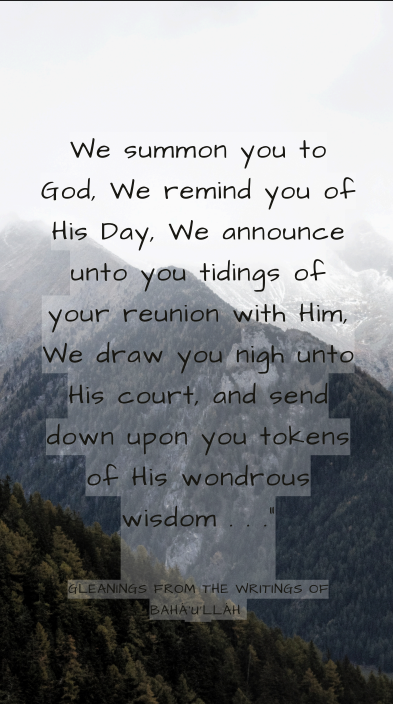 We summon you to
God, We remind you of
His Day, We announce
unto you tidings of
your reunion with Him,
We draw you nigh unto
His court, and send
down upon you tokens
of His wondrous
wisdom . . ."
GLEANINGS FROM THE WRITINGS OF
BAHA'U'LLAH